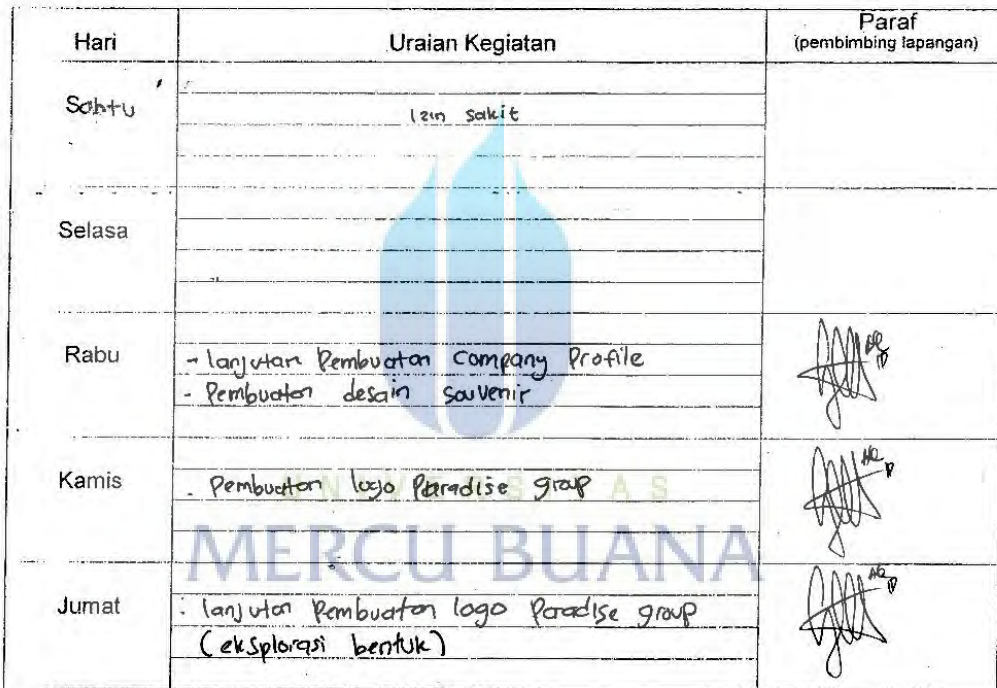 Hari Uraian Kegiatan Paraf
(pembimbing lapangan)
Sabtu
Izin sakit
Selasa
Rabu
- lanjutan Pembuatan Company Profile
- Pembuatan desain Souvenir
Kamis
- Pembuatan logo Paradise group
UNIVERSITAS
MERCU BUANA
Jumat
- lanjutan Pembuatan logo Paradise group
(eksplorasi bentuk)